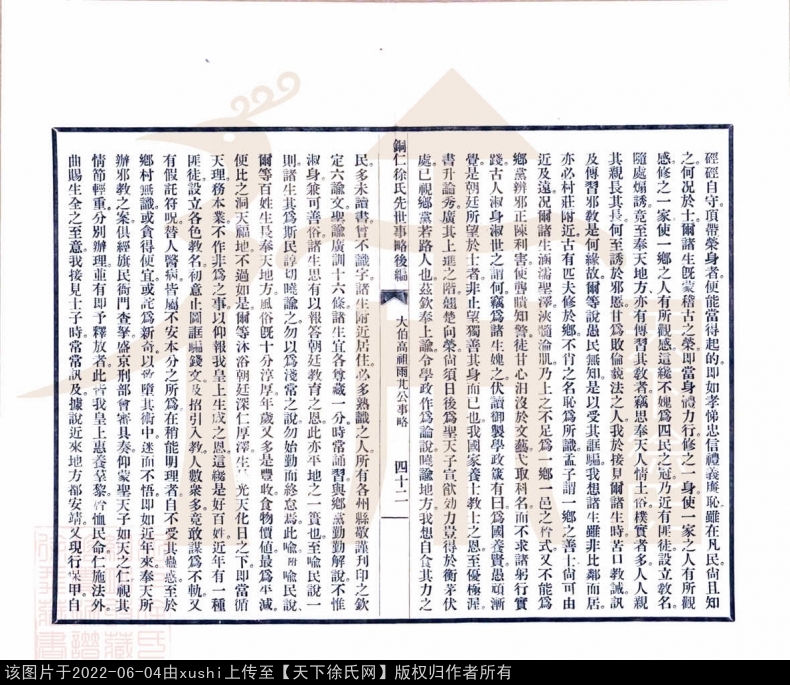 硜硜自守頂帶榮身者便能當得起的即如孝悌忠信禮義廉恥雖在凡民尙且知
之何况於士爾諸生旣蒙稽古之榮即當身體力行修之一身使一家之人有所觀
感修之一家使一鄉之人有所觀感這纔不媿爲四民之冠乃近有匪徒設立教名
隨處煽誘竟至奉天地方亦有傳習其教者竊思奉天人情土俗樸實者多人人親
其親長其長何至誘於邪慝甘爲敗倫蔑法之人我於接見爾諸生時苦口教誡訊
及傳習邪教是何緣故爾等說愚民無知是以受其誆騙我想諸生雖非比鄰而居
亦必村莊附近古有匹夫修於鄉不肖之名恥爲所識孟子謂一鄉之善士尙可由
近及遠况爾諸生涵濡聖澤浹髓淪肌乃上之不足爲一鄉一邑之矜式又不能爲
鄉黨辨邪正陳利害使聾聵知警徒甘心汨沒於文藝弋取科名而不求諸躬行實
踐古人淑身淑世之謂何竊爲諸生媿之伏讀御製學政箴有曰爲國養賢愚頑漸
覺是朝廷所望於士者非止望獨善其身而已也我國家養士教士之恩至優極渥
書升論秀廣其上進之階翹楚向榮尙須日後爲聖天子宣猷効力豈得於衡茅伏
處已視鄉黨若路人也茲欽奉上諭令學政作爲論說曉諭地方我想自食其力之
銅仁徐氏先世事略後編
大伯高祖雨芃公事略
四十二
民多未讀書曾不識字諸生附近居住必多熟識之人所有各州縣敬謹刊印之欽
定六諭文聖諭廣訓十六條諸生宜各尊藏一分時常誦習與鄉黨勤勤解說不惟
淑身兼可善俗諸生思有以報答朝廷教育之恩此亦平地之一簣也至喻民一說
則諸生其爲斯民諄切曉諭之勿以爲淺常之說勿始勤而終怠焉此喻附喻民說
爾等百姓生長奉天地方風俗旣十分淳厚年歲又多是豐收食物價値最爲平減
便比之洞天福地不過如是爾等沐浴朝廷深仁厚澤生於光天化日之下即當循
天理務本業不作非爲之事以仰報我皇上生成之恩這纔是好百姓近年有一種
匪徒設立各色教名初意止圖誆騙錢文及招引入教人數衆多竟敢謀爲不軌又
有假託符呪替人醫病皆屬不安本分之所爲在稍能明理者自不受其蠱惑至於
鄉村無識或貪得便宜或詫爲新奇以致墮其術中迷而不悟即如近年來奉天所
辦邪教之案俱經旗民衙門查拏盛京刑部會審具奏仰蒙聖天子如天之仁視其
情節輕重分別辦理並有即予釋放者此皆我皇上惠養羣黎矜恤民命仁施法外
曲賜生全之至意我接見士子時常常訊及據說近來地方都安靖又現行保甲自
该图片于2022-06-04由xushi上传至【天下徐氏网】版权归作者所有